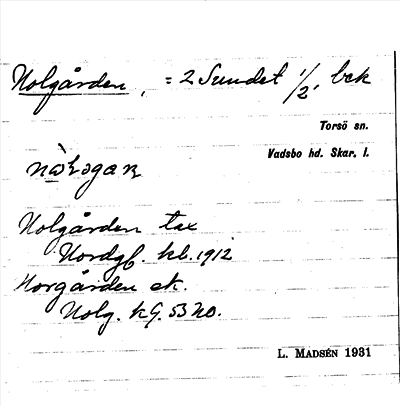 Nolgården, = 2 Sundet 1/2, bek
Torsö sn.
Vadsbo hd. Skar. l.
Nolgården tax
Nordgf. kb. 1912
Norgården ek.
Nolg. kG. 53 No.
L. MADSÉN 1931